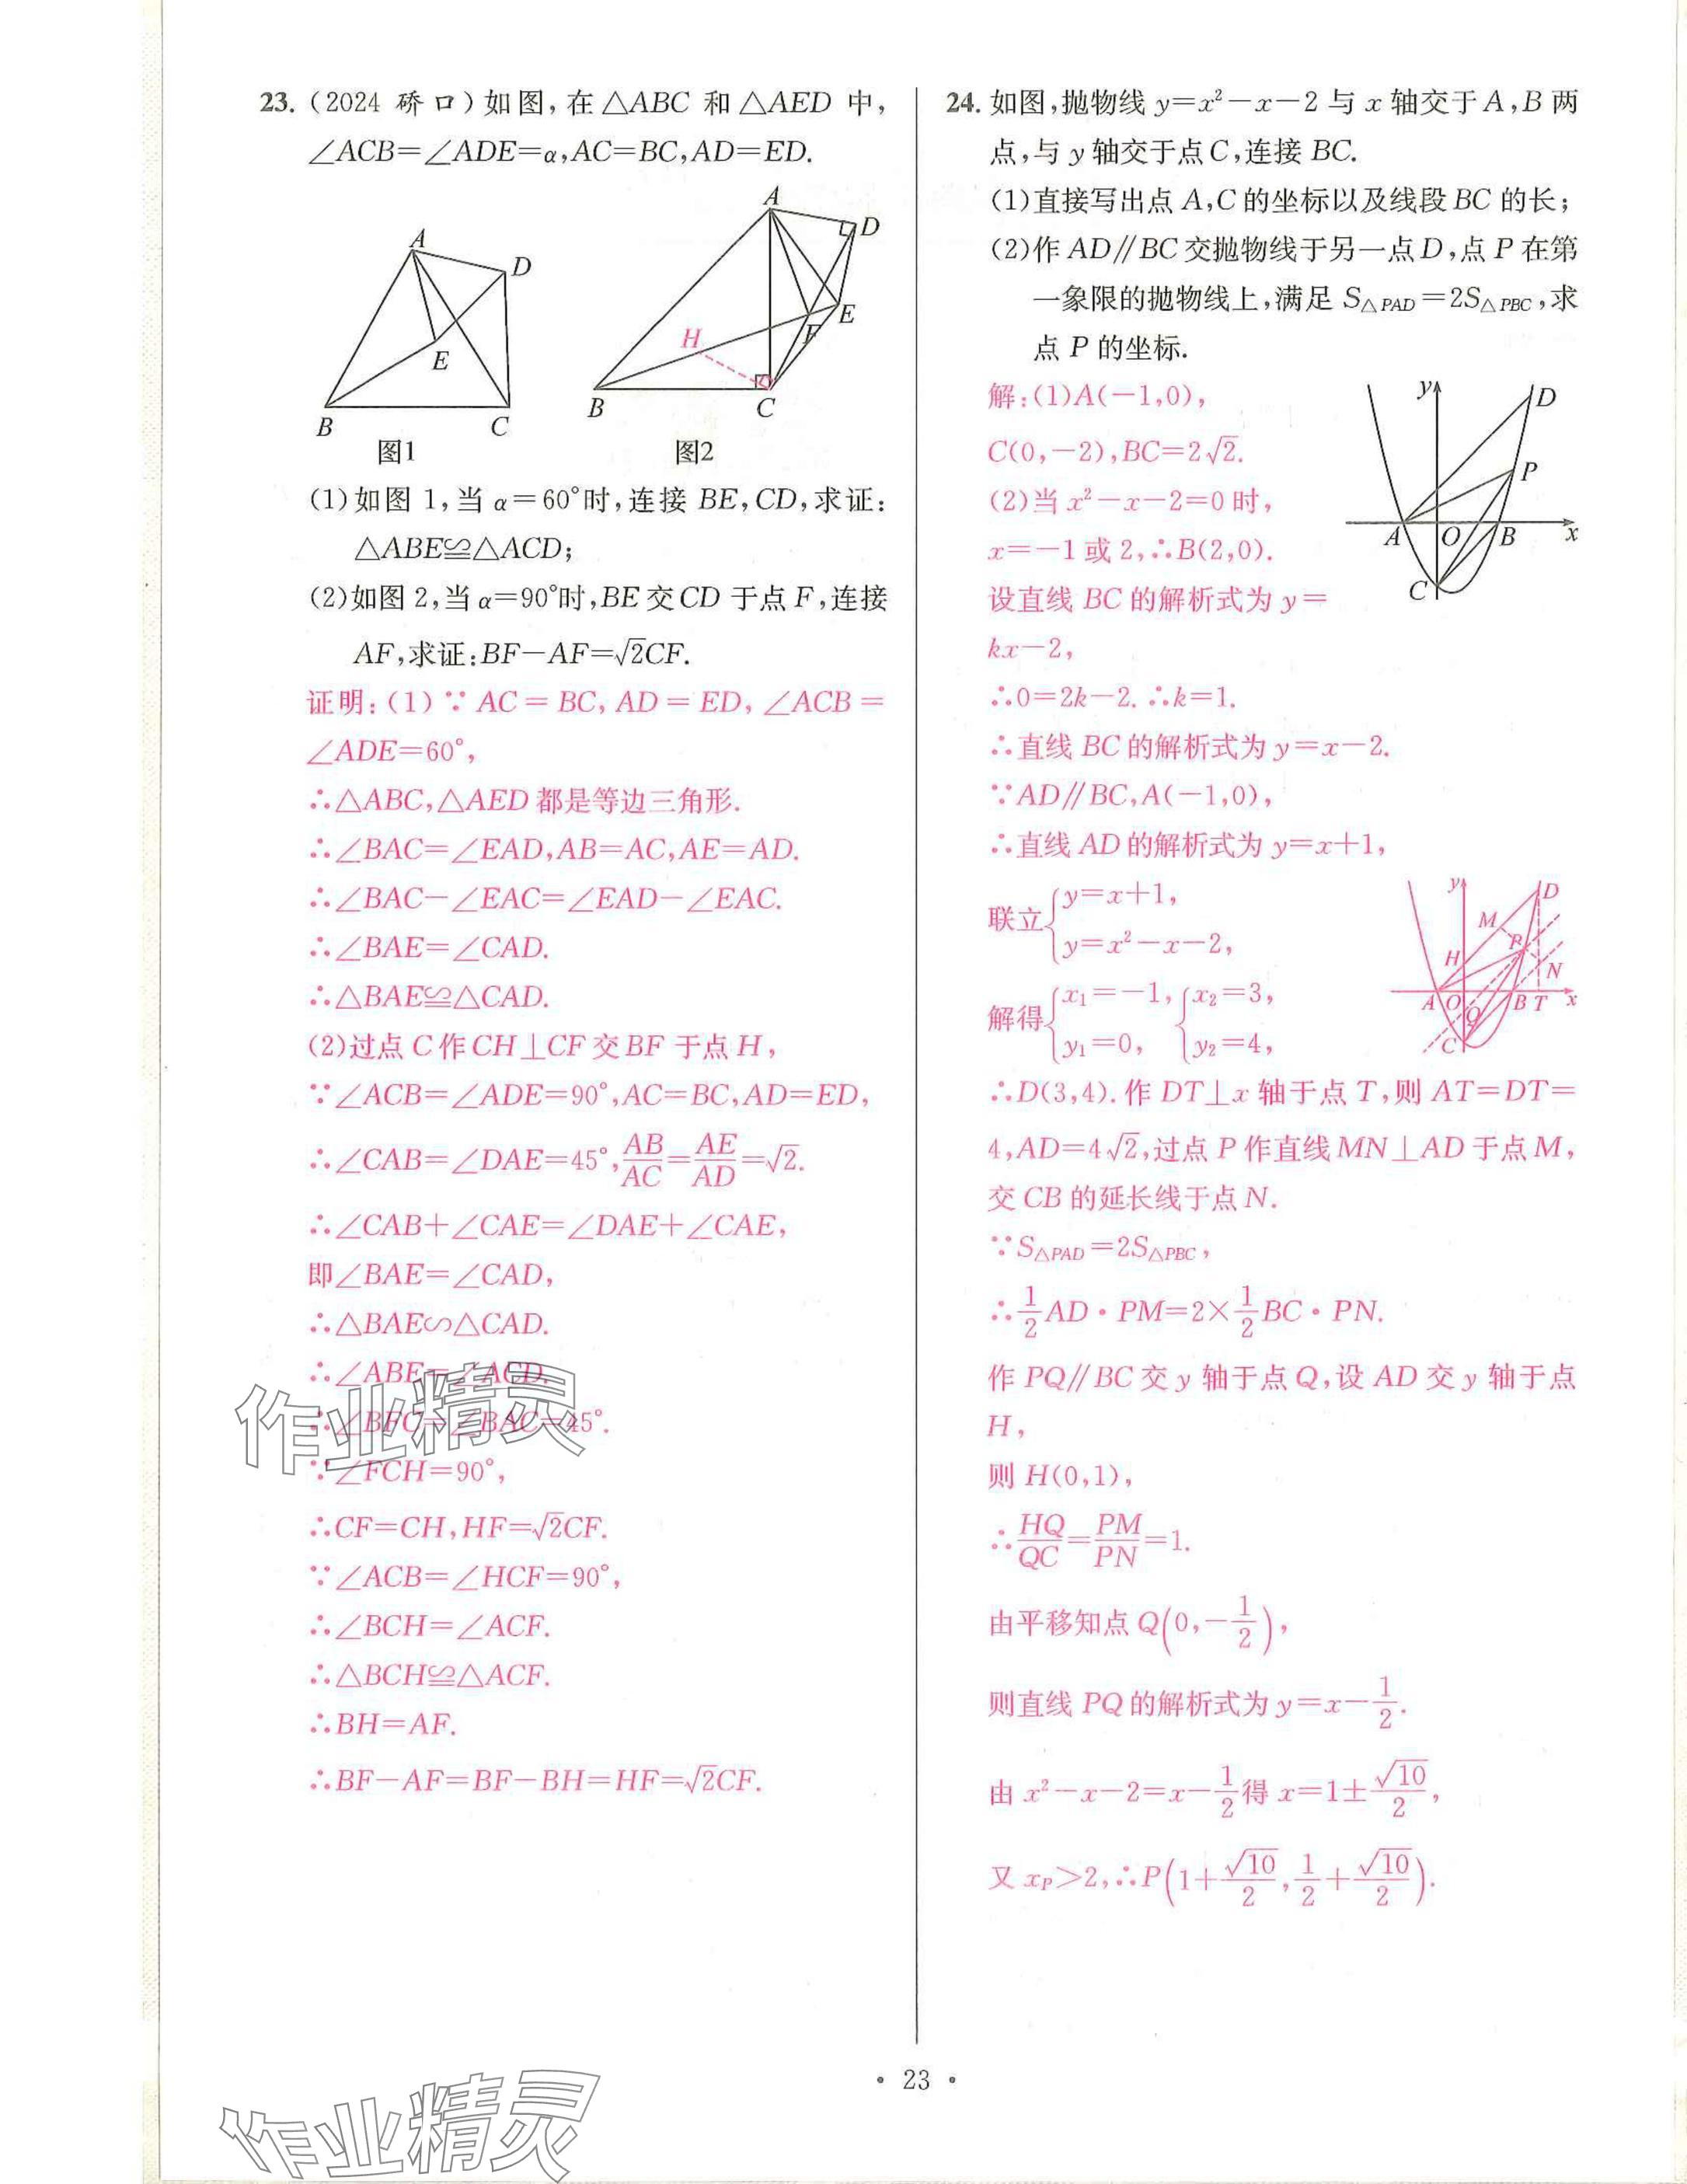 23.(2024 硚口)如图,在△ABC 和△AED 中,
∠ACB=∠ADE=α,AC=BC,AD=ED.
A
D
E
B
C
图1
A
D
E
F
H
B
C
图2
(1)如图 1,当 α=60°时,连接 BE,CD,求证:
△ABE≌△ACD;
(2)如图 2,当 α=90°时,BE 交 CD 于点 F,连接
AF,求证:BF-AF=√2CF.
证明:(1)∵AC=BC,AD=ED,∠ACB=
∠ADE=60°,
∴△ABC,△AED 都是等边三角形.
∴∠BAC=∠EAD,AB=AC,AE=AD.
∴∠BAC-∠EAC=∠EAD-∠EAC.
∴∠BAE=∠CAD.
∴△BAE≌△CAD.
(2)过点 C 作 CH⊥CF 交 BF 于点 H,
∵∠ACB=∠ADE=90°,AC=BC,AD=ED,
∴∠CAB=∠DAE=45°,AB/AC=AE/AD=√2.
∴∠CAB+∠CAE=∠DAE+∠CAE,
即∠BAE=∠CAD,
∴△BAE∽△CAD.
∴∠ABE=∠ACD.
∴∠BFC=∠BAC=45°.
∵∠FCH=90°,
∴CF=CH,HF=√2CF.
∵∠ACB=∠HCF=90°,
∴∠BCH=∠ACF.
∴△BCH≌△ACF.
∴BH=AF.
∴BF-AF=BF-BH=HF=√2CF.
24.如图,抛物线 y=x²-x-2 与 x 轴交于 A,B 两
点,与 y 轴交于点 C,连接 BC.
(1)直接写出点 A,C 的坐标以及线段 BC 的长;
(2)作 AD∥BC 交抛物线于另一点 D,点 P 在第
一象限的抛物线上,满足 S△PAD=2S△PBC,求
点 P 的坐标.
解:(1)A(-1,0),
C(0,-2),BC=2√2.
(2)当 x²-x-2=0 时,
x=-1 或 2,∴B(2,0).
设直线 BC 的解析式为 y=
kx-2,
y
D
P
A
O
B
x
C
∴0=2k-2.∴k=1.
∴直线 BC 的解析式为 y=x-2.
∵AD∥BC,A(-1,0),
∴直线 AD 的解析式为 y=x+1,
联立{y=x+1,
y=x²-x-2,
解得{x₁=-1, {x₂=3,
y₁=0, y₂=4,
y
D
M
P
H
N
A
O
Q
B
T
x
C
∴D(3,4).作 DT⊥x 轴于点 T,则 AT=DT=
4,AD=4√2,过点 P 作直线 MN⊥AD 于点 M,
交 CB 的延长线于点 N.
∵S△PAD=2S△PBC,
∴1/2AD·PM=2×1/2BC·PN.
作 PQ∥BC 交 y 轴于点 Q,设 AD 交 y 轴于点
H,
则 H(0,1),
∴HQ/QC=PM/PN=1.
由平移知点 Q(0,-1/2),
则直线 PQ 的解析式为 y=x-1/2.
由 x²-x-2=x-1/2得 x=1±√10/2,
又 xP>2,∴P(1+√10/2,1/2+√10/2).
作业精灵
· 23 ·
作业精灵